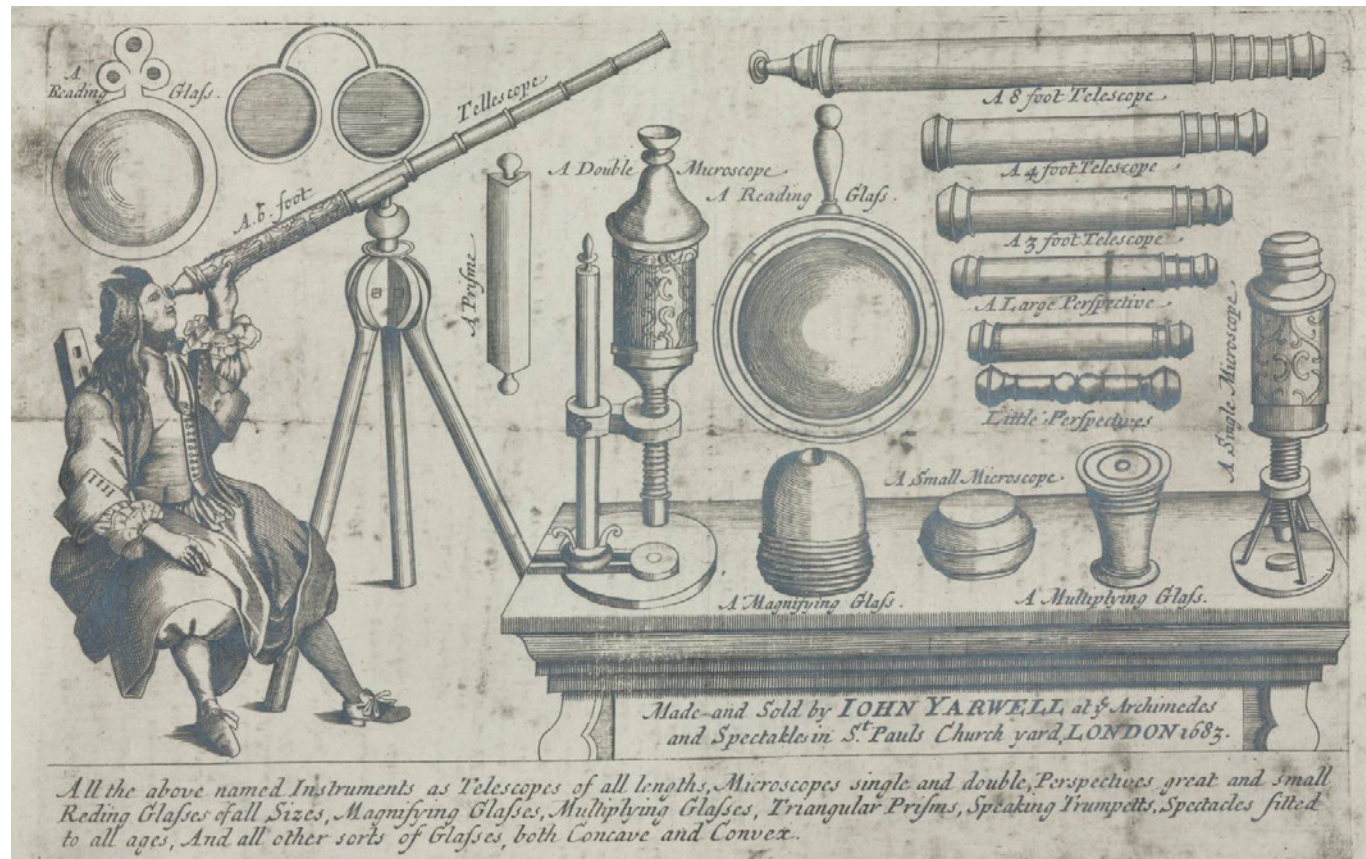 A
Reading Glaſs.
A. 6. foot Tellescope
A Priſme
A Double Microscope
A Reading Glaſs.
A 8 foot Telescope
A 4 foot Telescope
A 3 foot Telescope
A Large Perſpective
Little Perſpectives
A Single Microscope
A Small Microscope.
A Magnifying Glaſs.
A Multiplying Glaſs.
Made and Sold by IOHN YARWELL at yͤ Archimedes
and Spectakles in Sᵗ. Pauls Church yard, LONDON 1683.
All the above named Instruments as Telescopes of all lengths, Microscopes single and double, Perspectives great and small
Reding Glaſses of all Sizes, Magnifying Glaſses, Multiplying Glaſses, Triangular Priſms, Speaking Trumpetts, Spectacles fitted
to all ages, And all other sorts of Glaſses, both Concave and Convex.